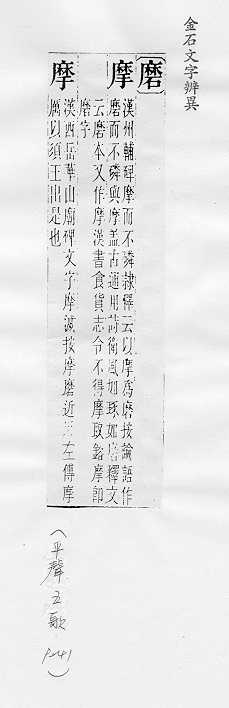 金石文字辨異
〔磨〕
摩
漢州輔碑摩而不磷隸釋云以摩為磨按論語作
磨而不磷與摩蓋古通用詩衛風如琢如磨釋文
云磨本又作摩漢書食貨志令不得摩取鋊摩即
磨字
摩
漢西岳華山廟碑文字摩滅按摩磨近三左傳摩
厲以須王出是也
(平聲五歌
P.241)